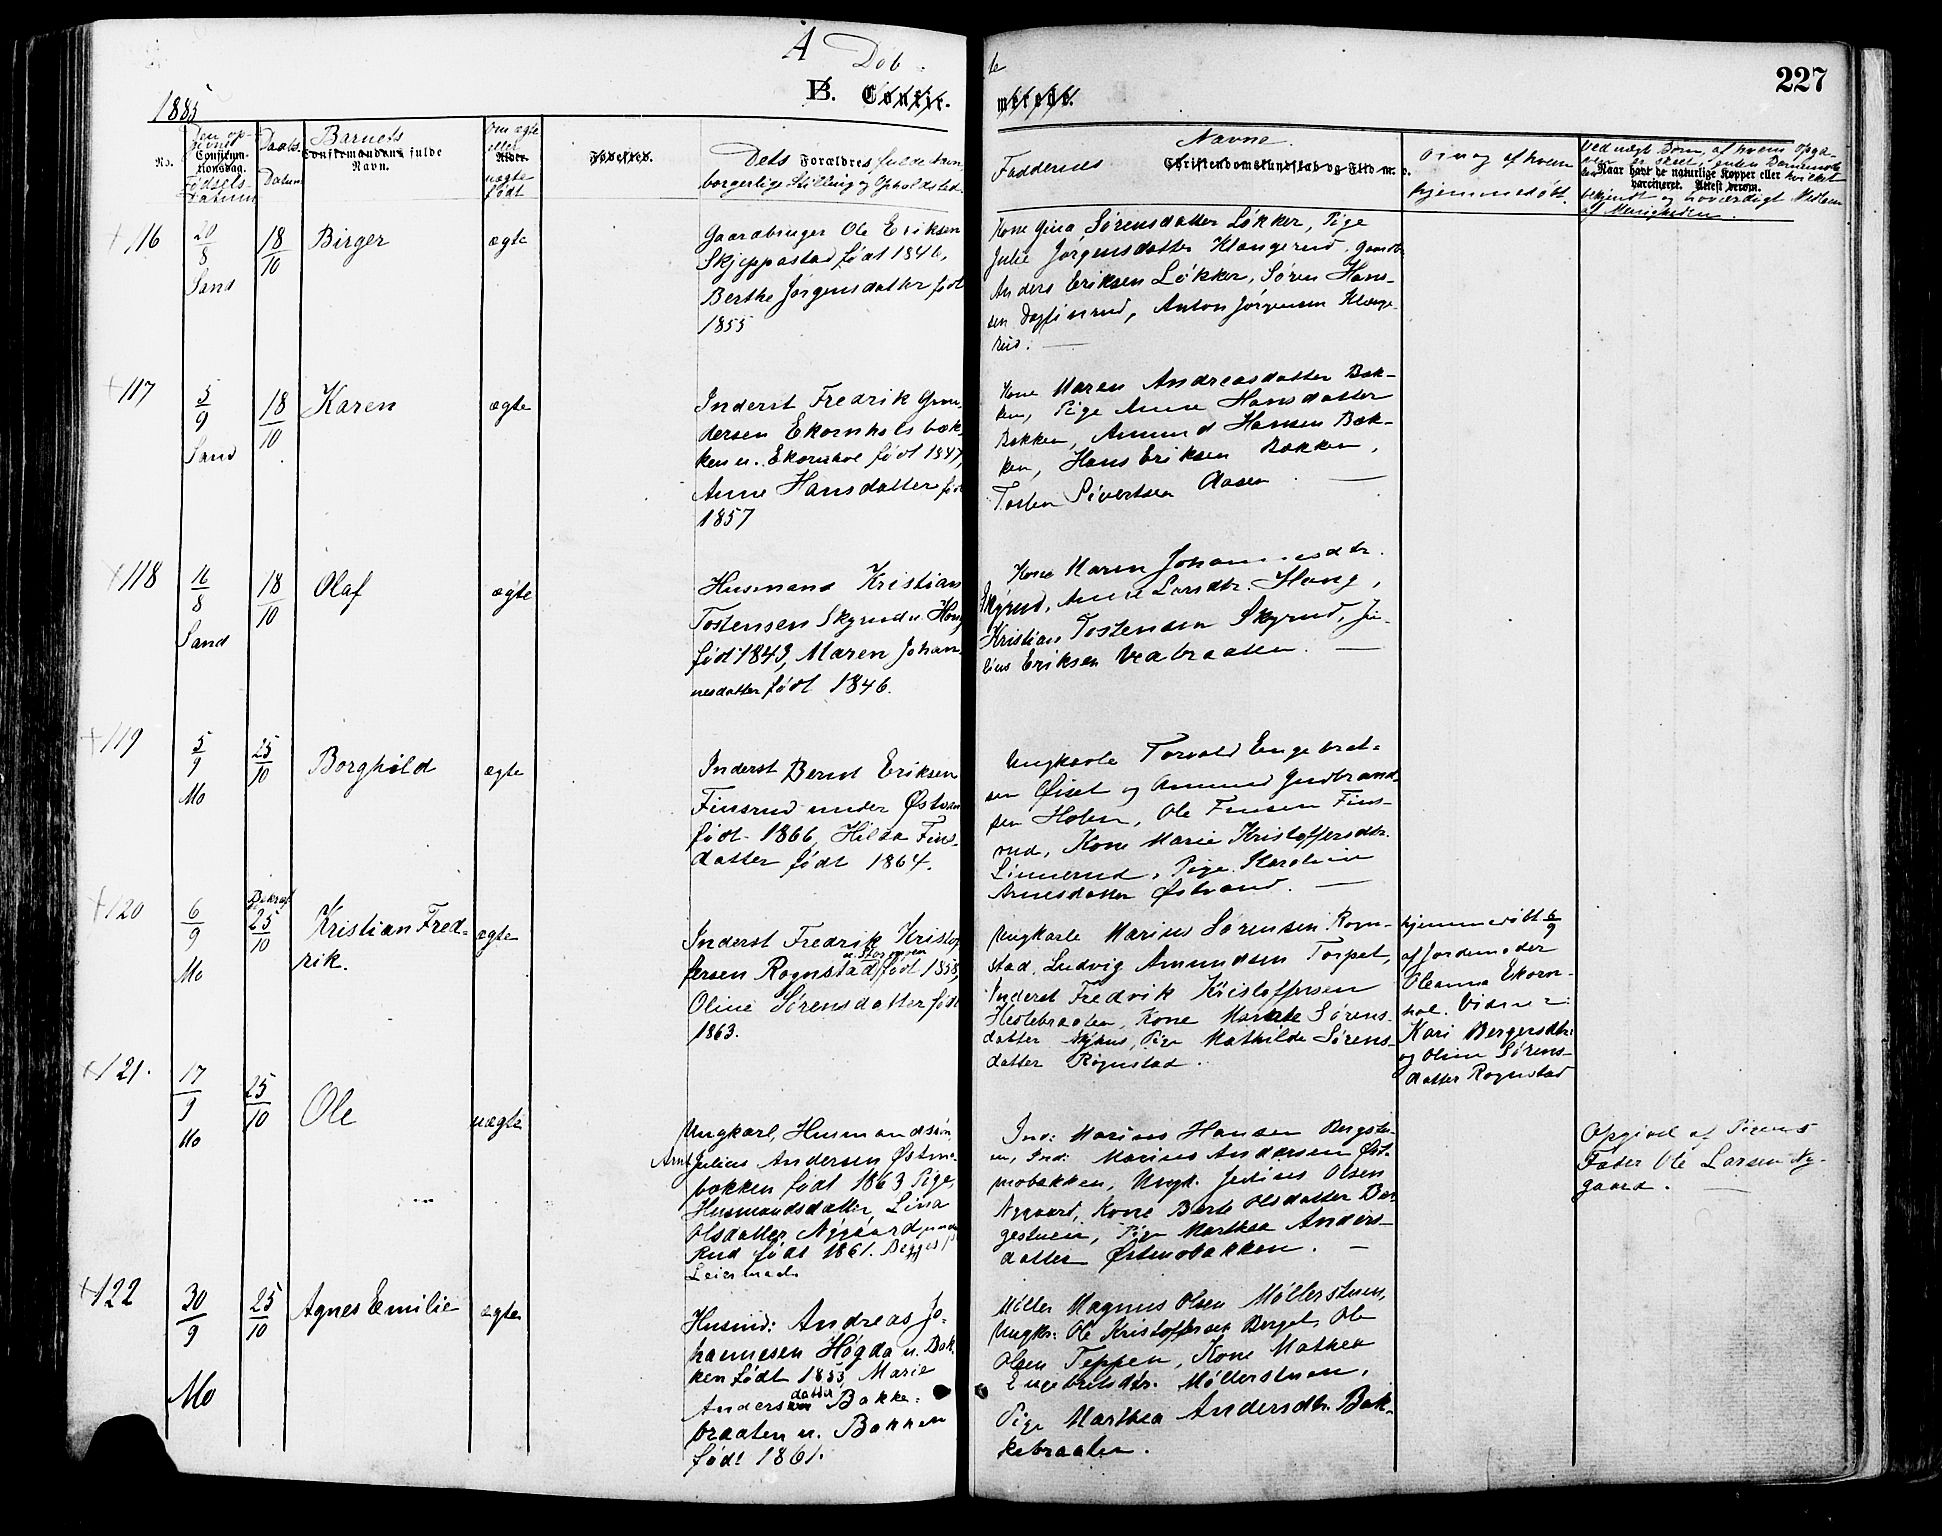 A Døb
te
227
1885
B. Confir.
merede.
No.
Den op-
givne
Confirma-
tionsdag.
Fødsels-
Datum
Daabs-
Datum
Barnets
Confirmandens fulde
Navn.
Om ægte
eller
Alder.
uægte
født
Fødested.
Dets Forældres fulde Navn,
borgerlige Stilling og Opholdssted
Faddernes Navne.
Christendomskundskab og Flid m. v.
Om og af hvem
hjemmedøbt.
Ved uægte Børn, af hvem Opga-
Naar havt de naturlige Kopper eller
vaccineret. Attest derom.
bekjendt og troværdigt Medlem
af Menigheden.
116
20/8
Sand
18/10
Birger
ægte
Gaardbruger Ole Eriksen
Skjeppastad født 1846,
Berthe Jørgensdatter født
1855
Kone Gina Sørensdatter Løkker, Pige
Julie Jørgensdatter Klangerud, Gaardb.
Anders Eriksen Løkker, Søren Han-
sen Dagfinrud, Anton Jørgensen Klange-
rud. —
117
5/9
Sand
18/10
Karen
ægte
Inderst Fredrik Gun-
dersen Ekornholsbæk-
ken u. Ekornhol født 1847,
Anne Hansdatter født
1857
Kone Maren Andreasdatter Bæk-
ken, Pige Anne Hansdatter
Bækken, Amund Hansen Bæk-
ken, Hans Eriksen Bækken,
Tosten Sivertsen Aasen. —
118
16/8
Sand
18/10
Olaf
ægte
Husmand Kristian
Tostensen Skyrud u. Houg
født 1843, Maren Johan-
nesdatter født 1846.
Kone Maren Johannesdtr.
Skyrud, Anne Larsdtr. Houg,
Kristian Tostensen Skyrud, Ju-
lius Eriksen Vedbraatten. —
119
5/9
Mo
25/10
Borghild
ægte
Inderst Bernt Eriksen
Finsrud under Østvan
født 1866, Hilda Fins-
datter født 1864.
Ungkarle Torvald Engebret-
sen Øiset og Amund Gudbrand-
sen Holen, Ole Finsen Fins-
rud, Kone Marie Kristoffersdtr.
Linnerud, Pige Karoline
Arnesdatter Østvand. —
120
6/9
Mo
Bekræft
25/10
Kristian Fred-
rik.
ægte
Inderst Fredrik Kristof-
fersen Rognstad født 1858,
Oline Sørensdatter født
1863.
Ungkarle Marius Sørensen Rogn-
stad, Ludvig Amundsen Torpet,
Inderst Fredrik Kristoffersen
Hestebraaten, Kone Marthe Sørens-
datter Nyhus, Pige Mathilde Sørens-
datter Rognstad.
hjemmedøbt 6/9
af Jordemoder
Oleanna Ekorn-
hol. Vidner:
Kari Bergersdtr.
og Oline Sørens-
datter Rognstad
121.
17/9
Mo
25/10
Ole
uægte
Ungkarl, Husmandssøn
Arnt Julius Andersen Østmo-
bakken født 1863, Pige,
Husmandsdatter, Lina
Olsdatter Nygaard under
Rud født 1861. Begges 1ste
Leiermaal.
Ind: Marius Hansen Bergstu-
en, Ind: Marius Andersen Øst-
mobakken, Ungk. Julius Olsen
Nygaard, Kone Berte Olsdatter Ber-
gestuen, Pige Marthea Anders-
datter Østmobakken. —
Opgivet af Pigens
Fader Ole Larsen Ny-
gaard. —
122
30/9
Mo
25/10
Agnes Emilie
ægte
Husmd: Andreas Jo-
hannesen Høgda u. Bak-
ken født 1853, Marie
Andersdatter Bakke-
braaten u. Bakken
født 1861.
Møller Magnus Olsen Møllerstuen,
Ungkr: Ole Kristoffersen Berget, Ole
Olsen Teppen, Kone Mathea
Engebretsdtr. Møllerstuen,
Pige Marthea Andersdtr. Bak-
kebraaten.